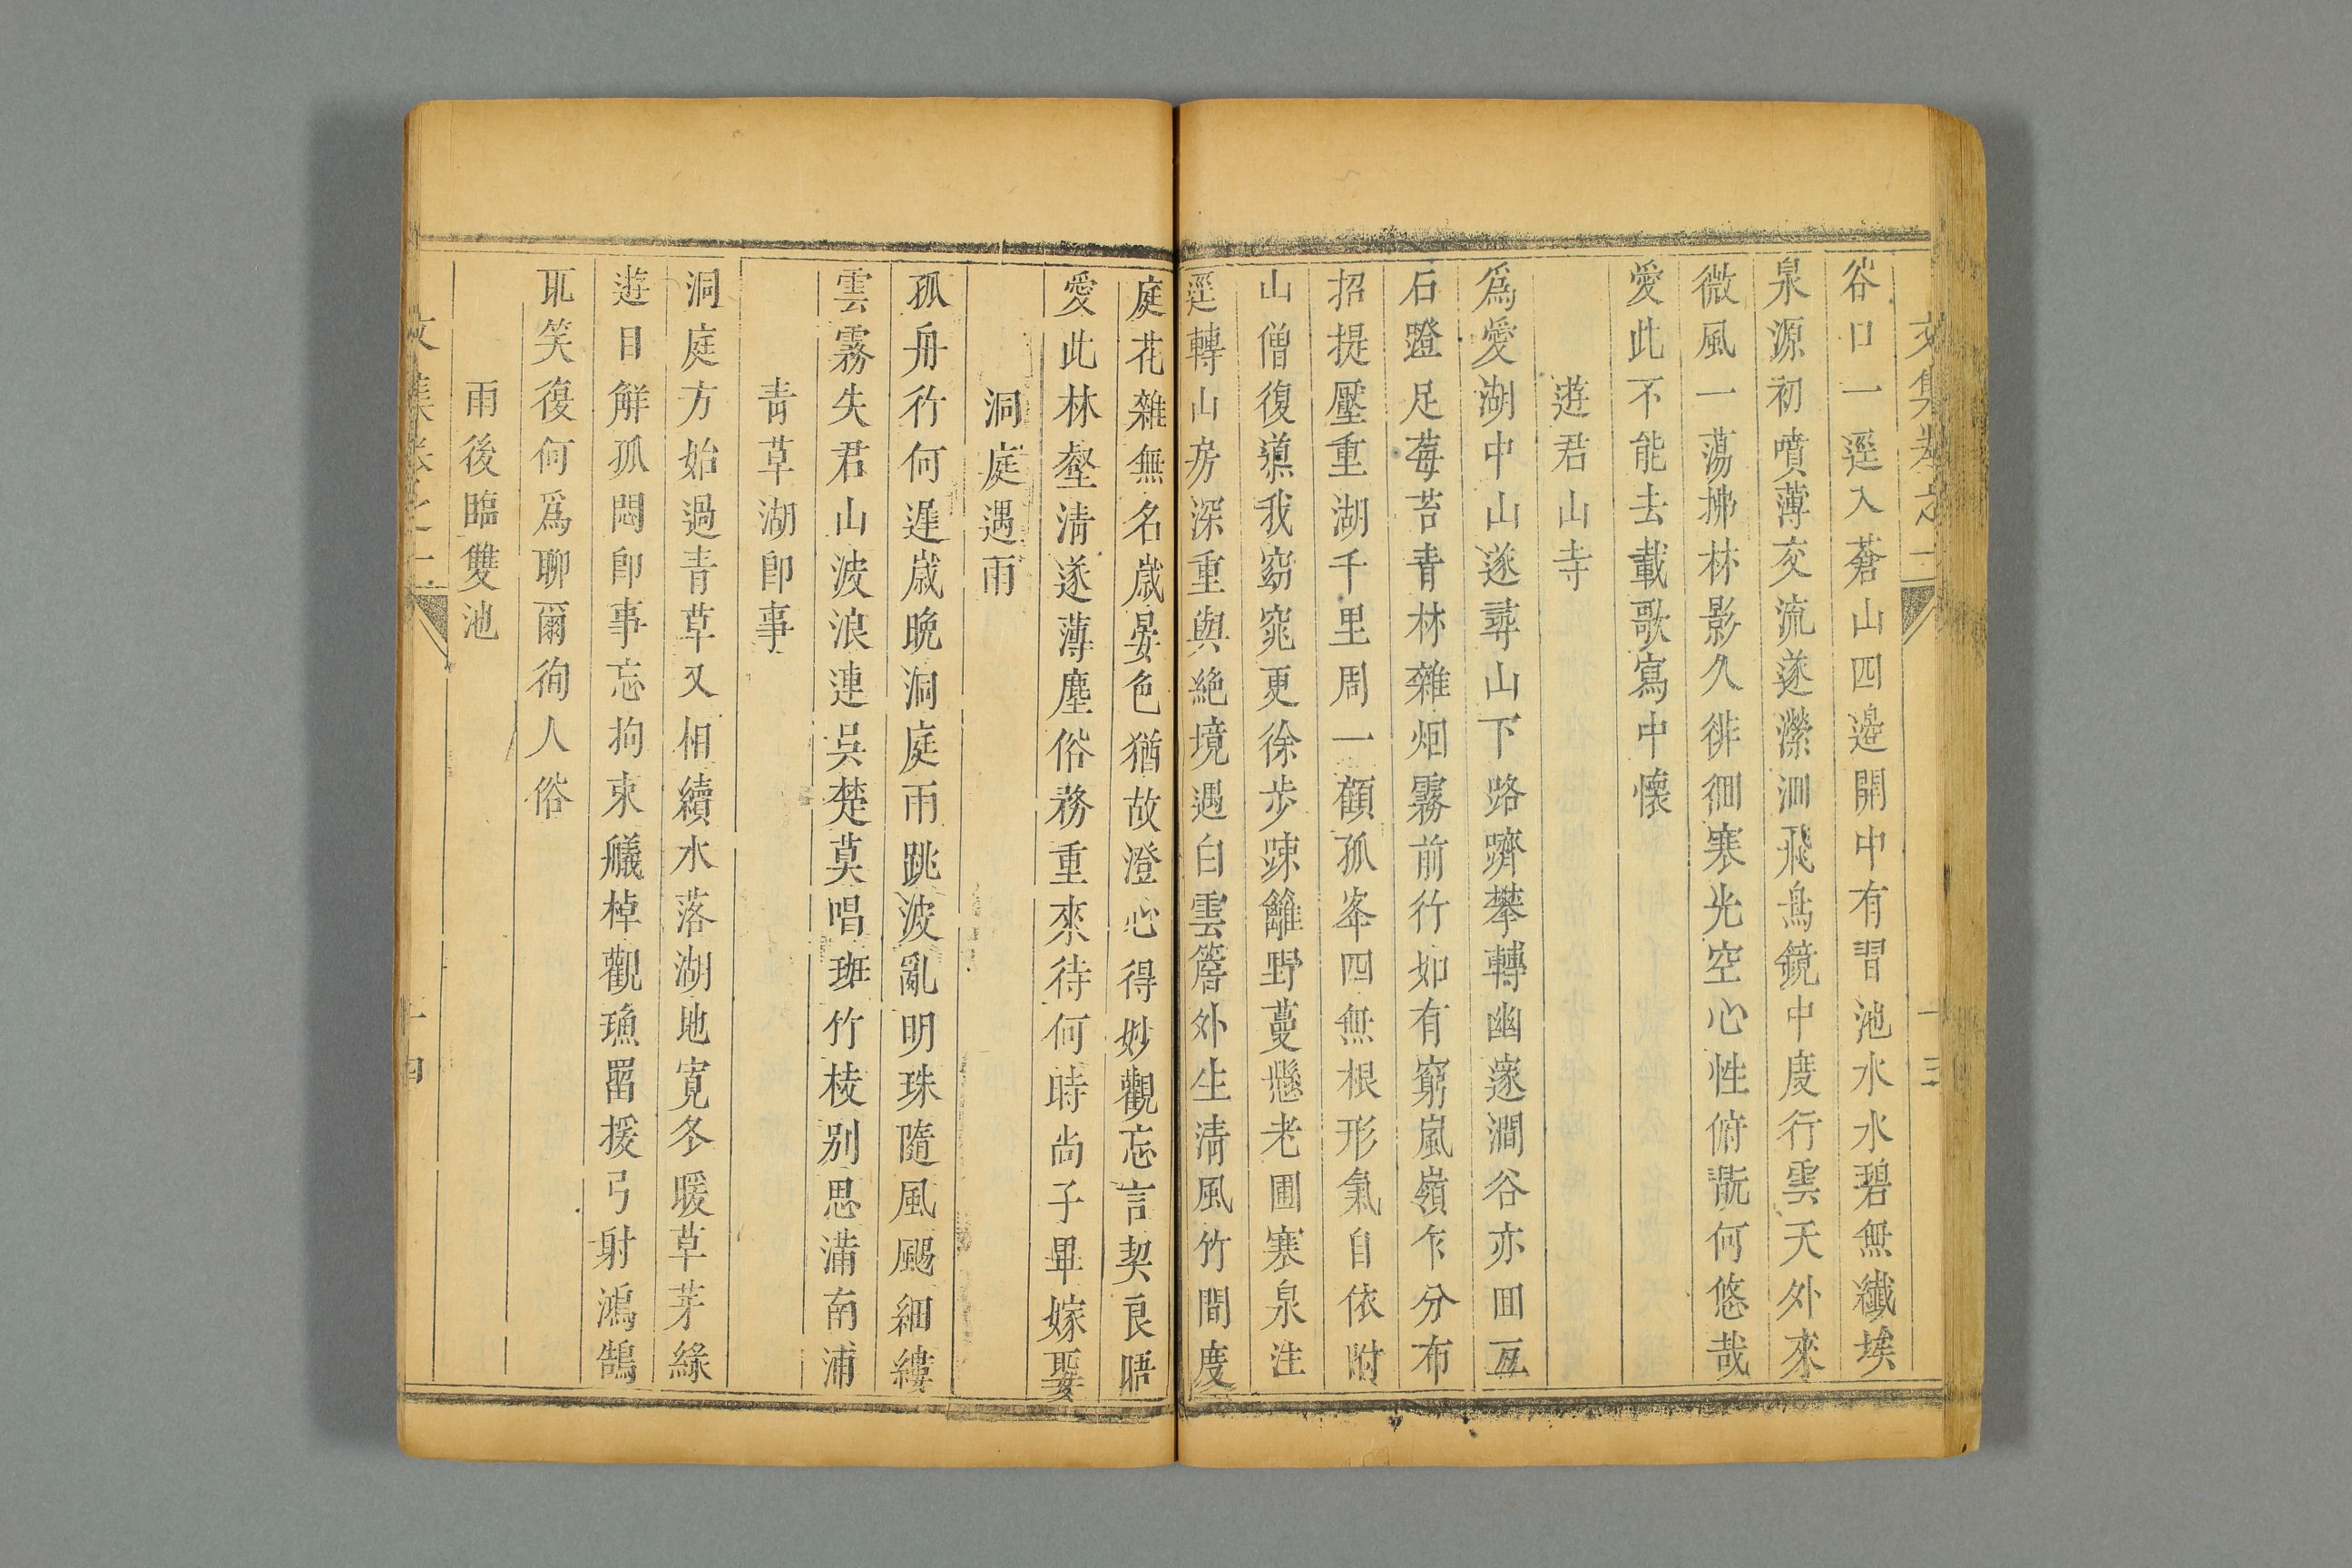 文集卷之一
十三
谷口一逕入蒼山四邉開中有習池水水碧無纖埃
泉源初噴薄交流遂瀠洄飛鳥鏡中度行雲天外來
微風一蕩拂林影久徘徊寒光空心性俯翫何悠哉
愛此不能去載歌寫中懷
遊君山寺
爲愛湖中山遂尋山下路躋攀轉幽邃澗谷亦回互
石蹬足莓苔青林雜烟霧前行如有窮嵐嶺乍分布
招提壓重湖千里周一顧孤峯四無根形氣自依附
山僧復導我窈窕更徐步疎籬野蔓懸老圃寒泉注
逕轉山房深重與絶境遇白雲簷外生清風竹間度
庭花雜無名歲晏色猶故澄心得妙觀忘言契良晤
愛此林壑清遂薄塵俗務重來待何時尚子畢嫁娶
洞庭遇雨
孤舟行何遲歲晚洞庭雨跳波亂明珠隨風颺細縷
雲霧失君山波浪連吳楚莫唱班竹枝别思滿南浦
青草湖即事
洞庭方始過青草又相續水落湖地寛冬暖草芽綠
遊日解孤悶即事忘拘束艤棹觀漁罾援弓射鴻鵠
玩笑復何爲聊爾徇人俗
雨後臨雙池
文集卷之一
十四